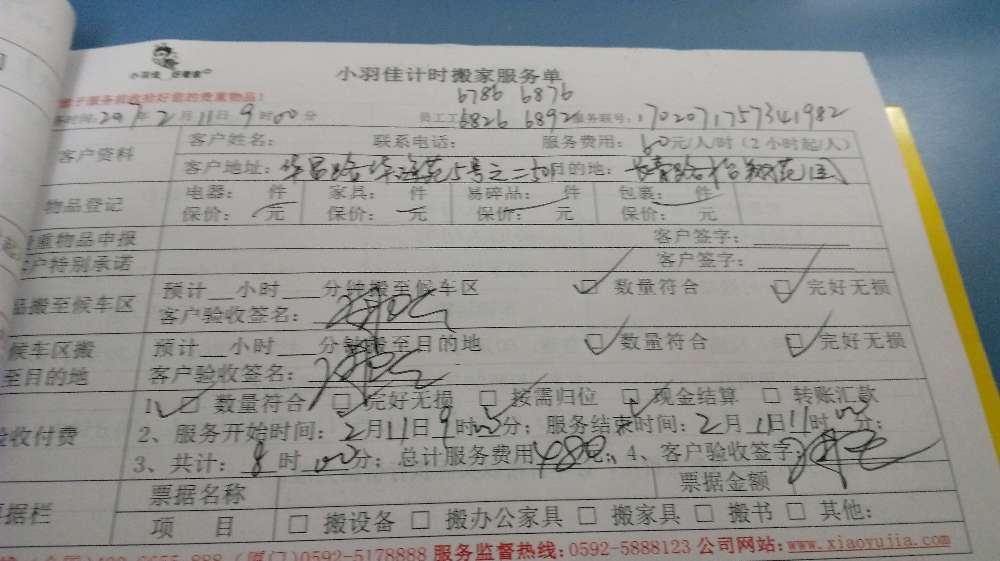 小羽佳计时搬家服务单
6786 6876
时间:2017年2月11日9时00分 员工工 6826 6892 服务联号:1702071757341982
客户资料 客户姓名: 联系电话: 服务费用:60元/人/时(2小时起/人)
客户地址:华昌路 5号之二 目的地:长青路
物品登记 电器: 件 家具: 件 易碎品: 件 包裹: 件
保价: 元 保价: 元 保价: 元 保价: 元
贵重物品申报 客户签字:
客户特别承诺 客户签字:
品搬至候车区 预计__小时___分钟搬至候车区 ☑数量符合 ☑完好无损
客户验收签名:
候车区搬至目的地 预计__小时___分钟搬至目的地 ☑数量符合 ☑完好无损
客户验收签名:
验收付费 1、☑数量符合 ☑完好无损 ☑按需归位 ☑现金结算 □转账汇款
2、服务开始时间:2月11日9时00分;服务结束时间:2月11日11时00分;
3、共计:8时00分;总计服务费用480元;4、客户验收签字:
票据栏 票据名称 票据金额
项 目 □搬设备 □搬办公家具 □搬家具 □搬书 □其他:
(厦门)0592-5178888 服务监督热线:0592-5888123 公司网站:www.xiaoyujia.com